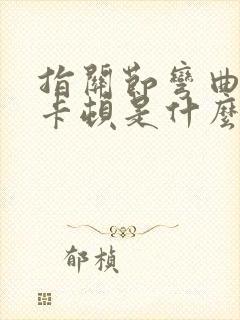 指關節彎曲
卡頓是什麼
郁楨